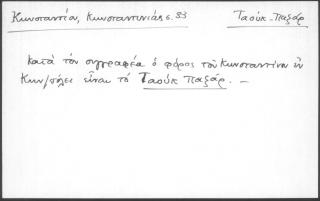 Κωνσταντίου, Κωνσταντινιάς σ. 83 Ταούκ-Παζάρ
Κατά τον συγγραφέα ο φόρος του Κωνσταντίνου εν
Κων/πόλει είναι το Ταούκ Παζάρ. —